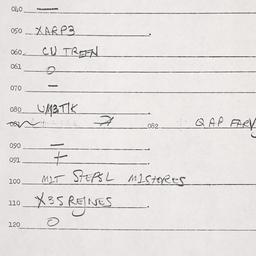 040 —
050 XARP3 .
060 CU TREEN
061 O
070 —
080 UMBTIK .
082 QAP FARV
090 —
091 +
100 MIT STEPSL MISTORES
110 X35 REJNES .
120 O